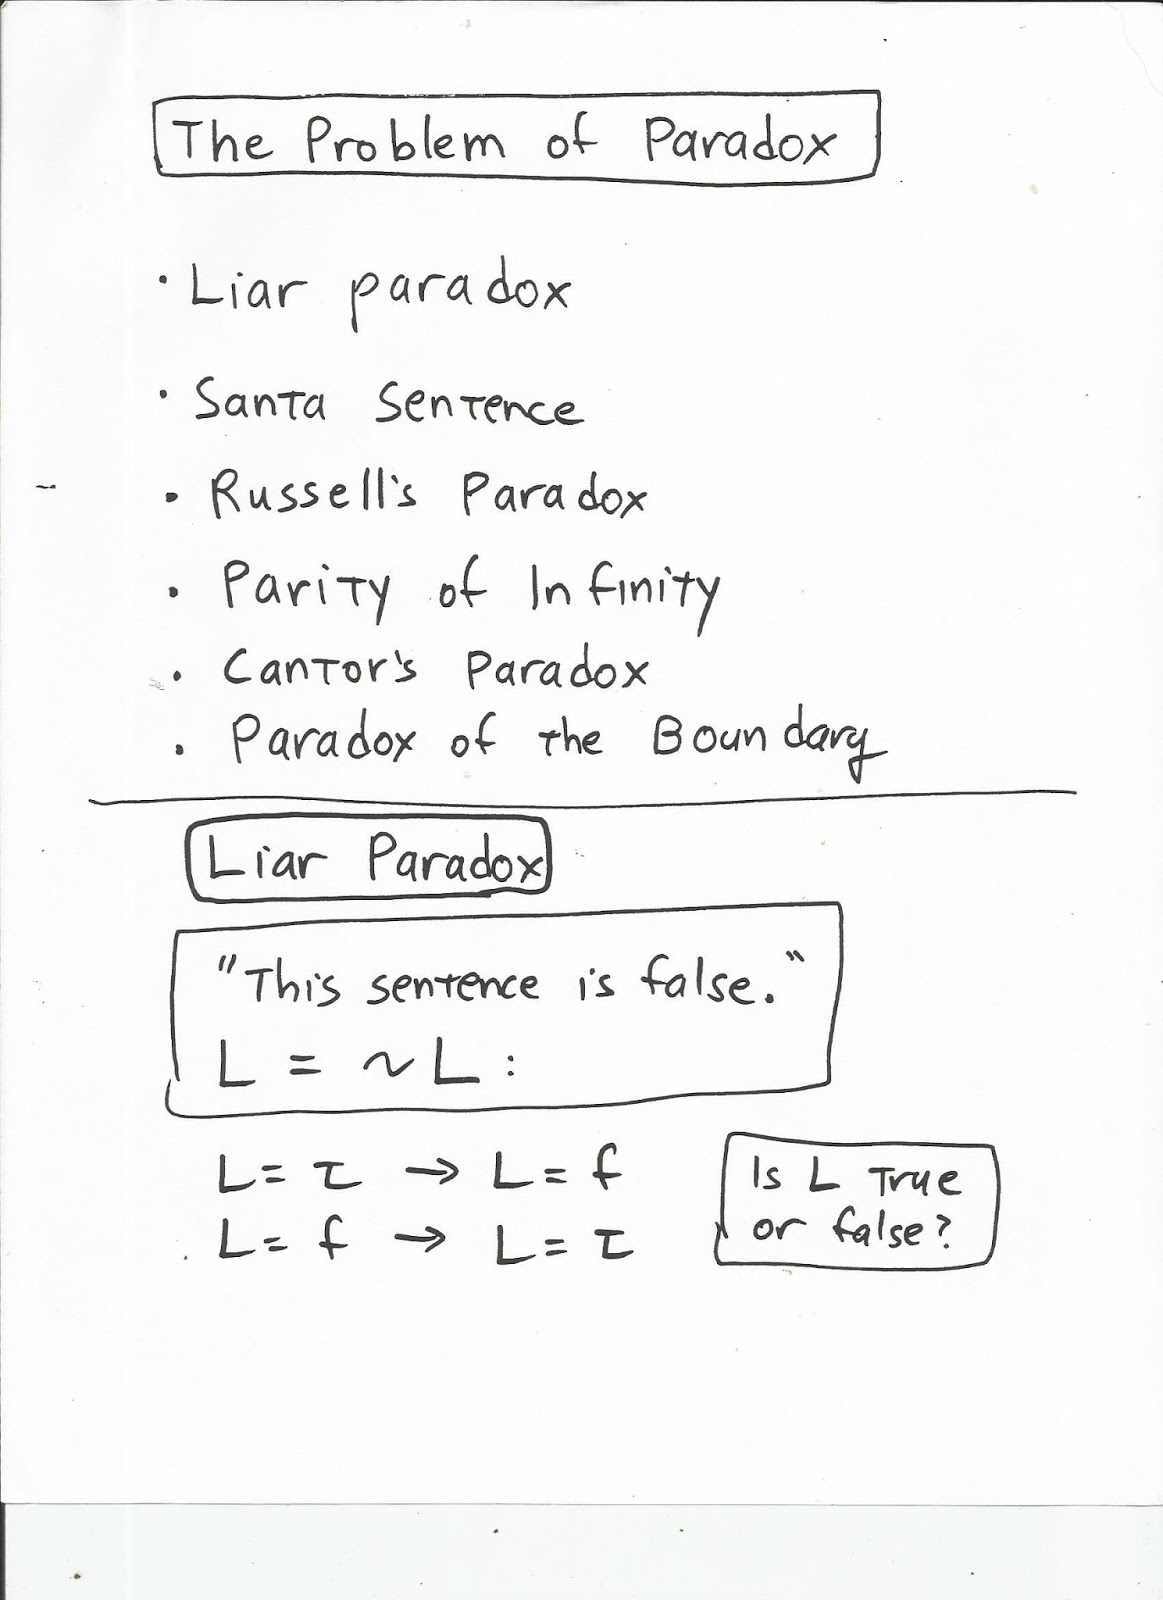 The Problem of Paradox
· Liar paradox
· Santa Sentence
· Russell's Paradox
· Parity of Infinity
· Cantor's Paradox
· Paradox of the Boundary
Liar Paradox
"This sentence is false."
L = ~L:
L = t → L = f
L = f → L = t
Is L True
or false?